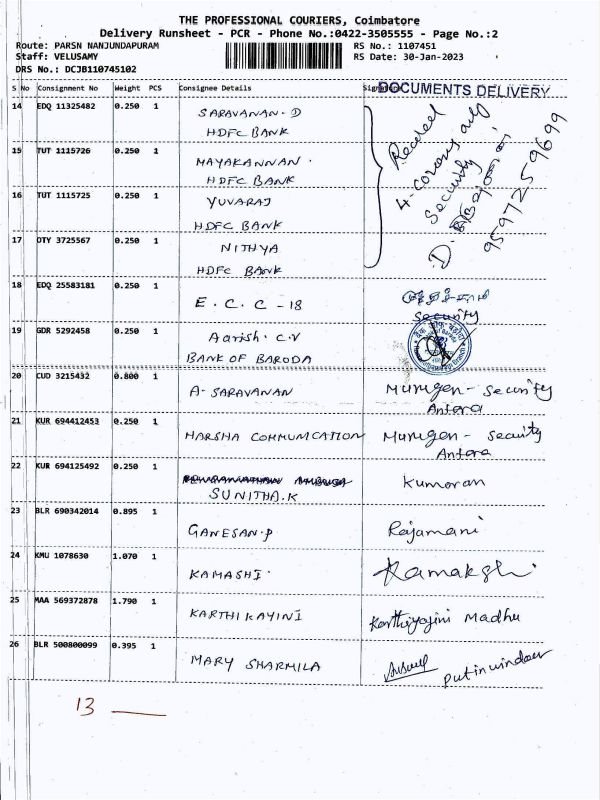 THE PROFESSIONAL COURIERS, Coimbatore
Delivery Runsheet - PCR - Phone No.:0422-3505555 - Page No.:2
Route: PARSN NANJUNDAPURAM
RS No.: 1107451
Staff: VELUSAMY
RS Date: 30-Jan-2023
DRS No.: DCJB110745102
S No Consignment No Weight PCS Consignee Details
DOCUMENTS DELIVERY
14 EDQ 11325482 0.250 1 SARAVANAN. D
HDFC BANK
15 TUT 1115726 0.250 1 MAYAKANNAN.
HDFC BANK
16 TUT 1115725 0.250 1 YUVARAJ
HDFC BANK
17 OTY 3725567 0.250 1 NITHYA
HDFC BANK
Received
4-
Security
D.
9597259699
18 EDQ 25583181 0.250 1 E. C. C -18
Security
19 GDR 5292458 0.250 1 Aarish. C.V
BANK OF BARODA
20 CUD 3215432 0.800 1 A. SARAVANAN Murugen - Security
Antora
21 KUR 694412453 0.250 1 HARSHA COMMUNICATION Murugen - Security
Antora
22 KUR 694125492 0.250 1 SUNITHA.K Kumoran
23 BLR 690342014 0.895 1 GANESAN.P Rajamani
24 KMU 1078630 1.070 1 KAMASHI. Kamakshi
25 MAA 569372878 1.790 1 KARTHIKAYINI Karthiyajini Madhu
26 BLR 500800099 0.395 1 MARY SHARMILA put in window
13